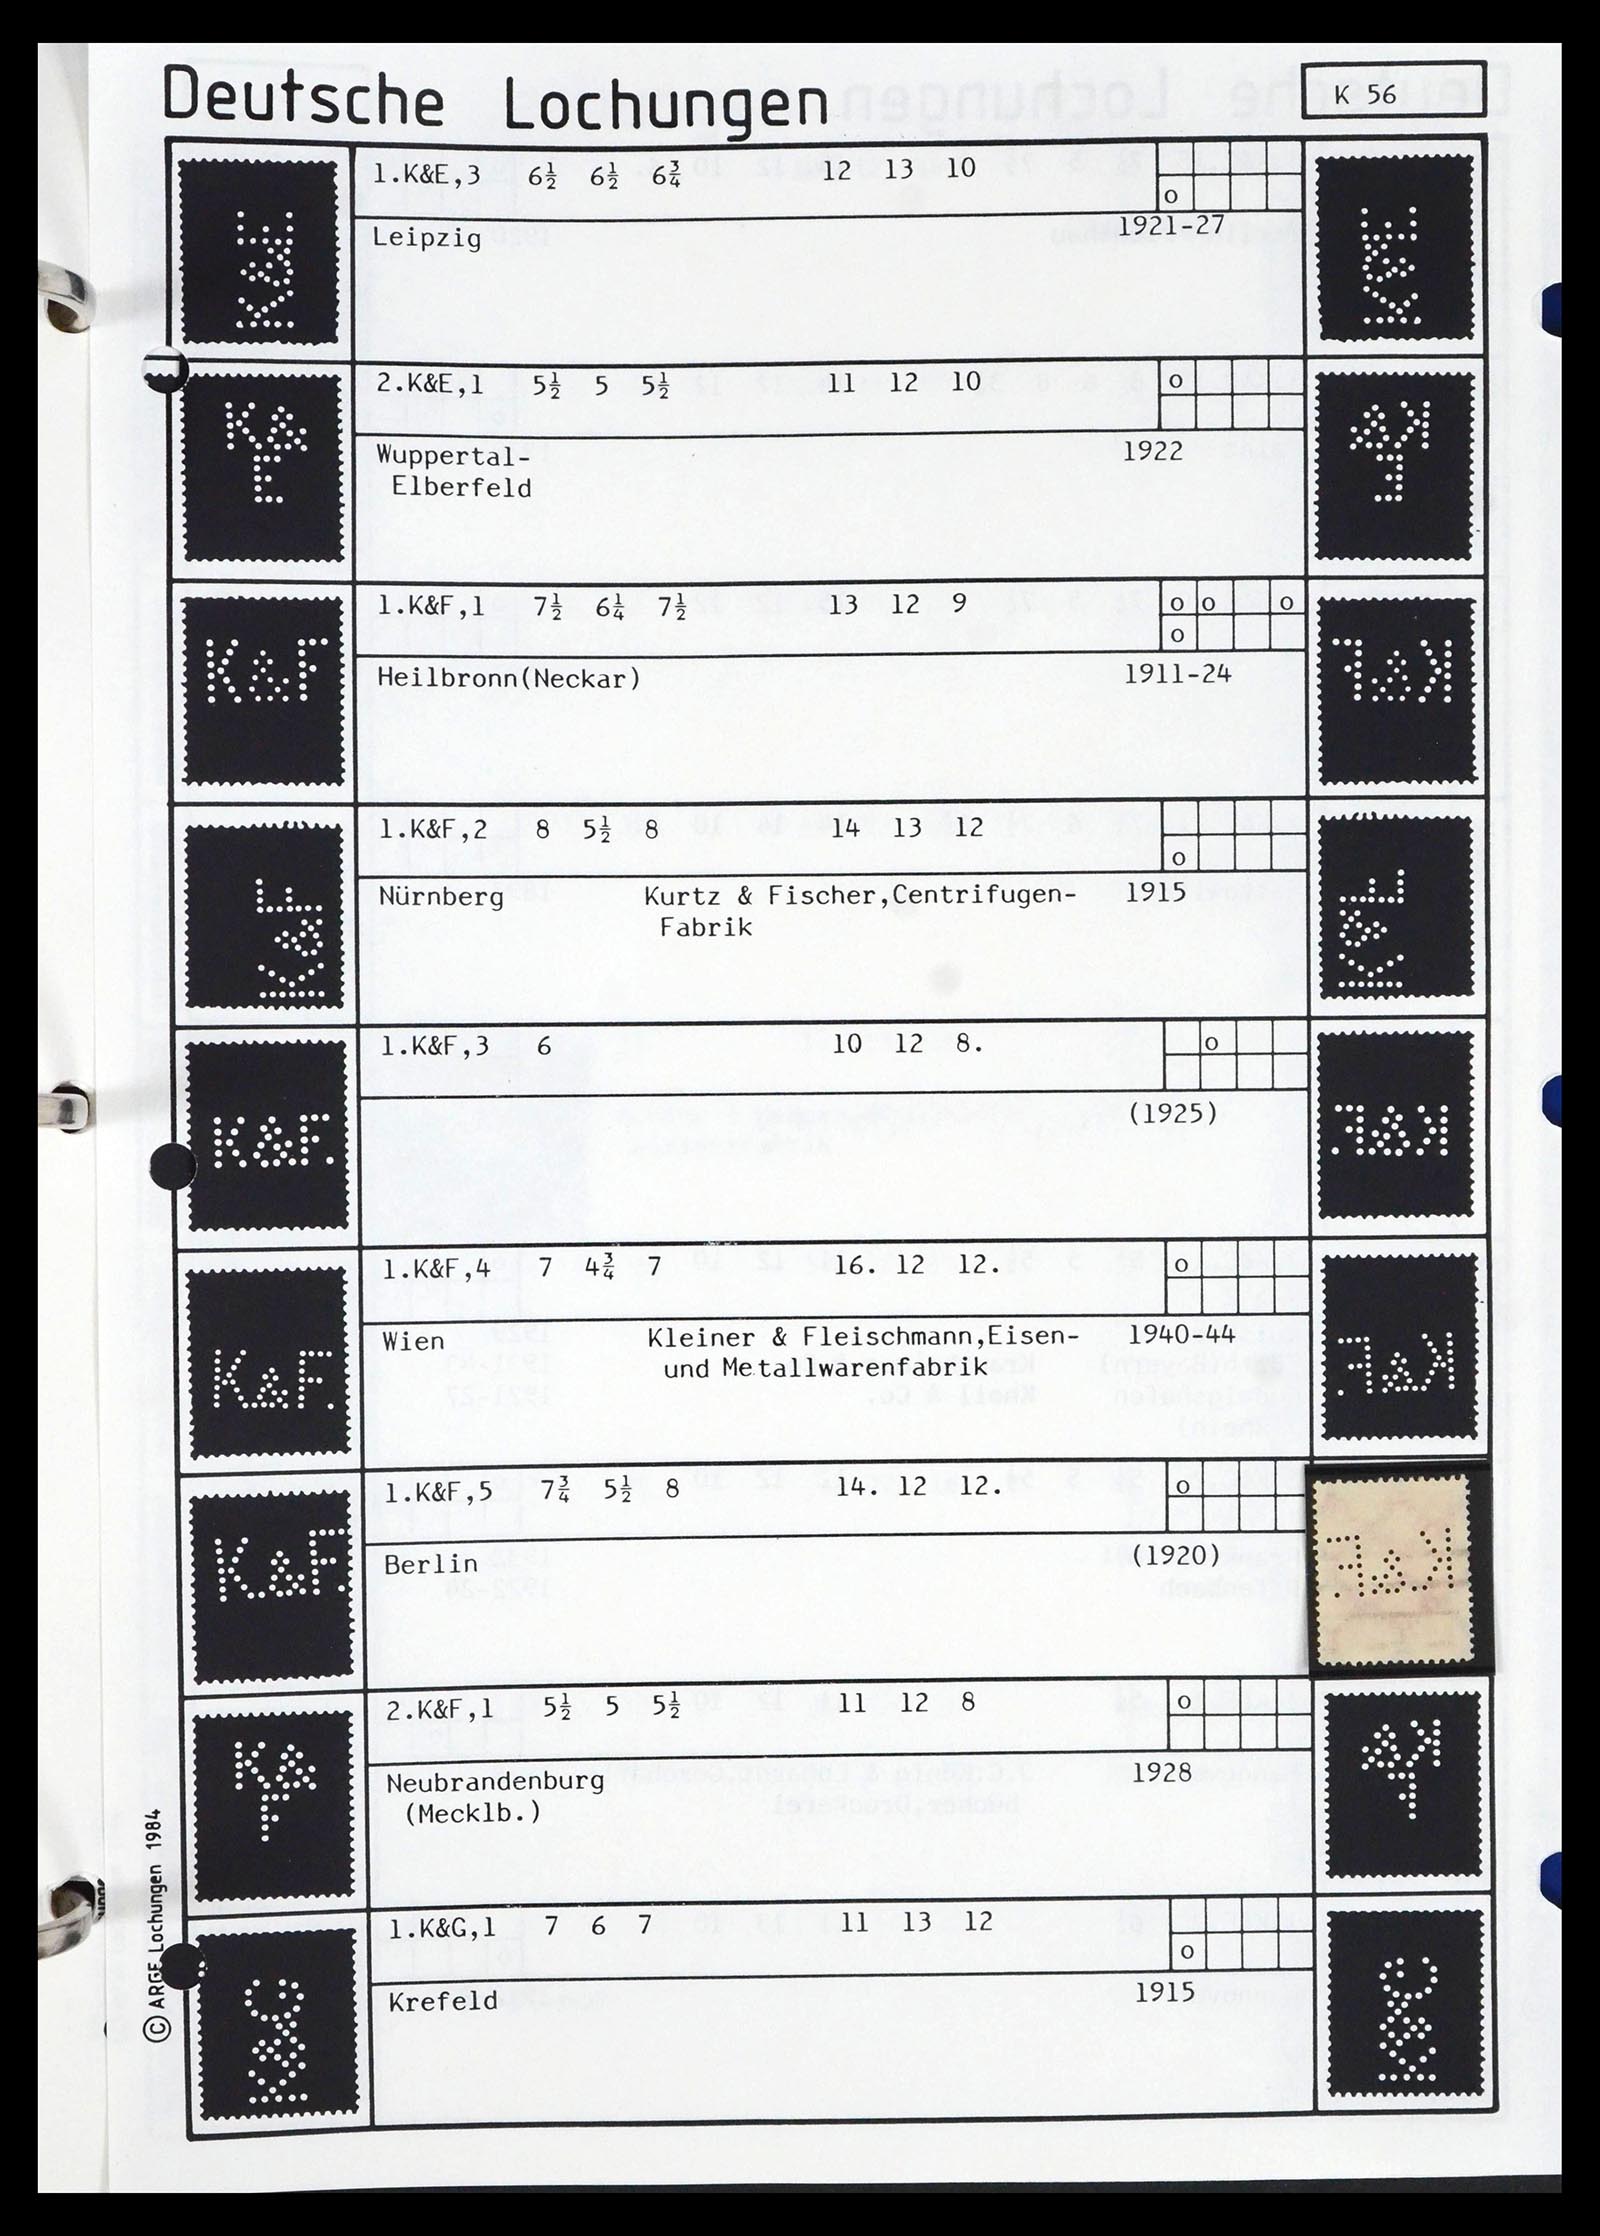 Deutsche Lochungen
K 56
1.K&E,3 6½ 6½ 6¾ 12 13 10
o
Leipzig 1921-27
K&E
K&E
2.K&E,1 5½ 5 5½ 11 12 10
o
Wuppertal- 1922
Elberfeld
K&
E
K&
E
1.K&F,1 7½ 6¼ 7½ 13 12 9
o o o
o
Heilbronn(Neckar) 1911-24
K&F
K&F
1.K&F,2 8 5½ 8 14 13 12
o
Nürnberg Kurtz & Fischer,Centrifugen- 1915
Fabrik
K&F
K&F
1.K&F,3 6 10 12 8.
o
(1925)
K&F.
K&F.
1.K&F,4 7 4¾ 7 16. 12 12.
o
Wien Kleiner & Fleischmann,Eisen- 1940-44
und Metallwarenfabrik
K&F.
K&F.
1.K&F,5 7¾ 5½ 8 14. 12 12.
o
Berlin (1920)
K&F.
K&F.
2.K&F,1 5½ 5 5½ 11 12 8
o
Neubrandenburg 1928
(Mecklb.)
K&
F
K&
F
1.K&G,1 7 6 7 11 13 12
o
Krefeld 1915
K&G
K&G
© ARGE Lochungen 1984